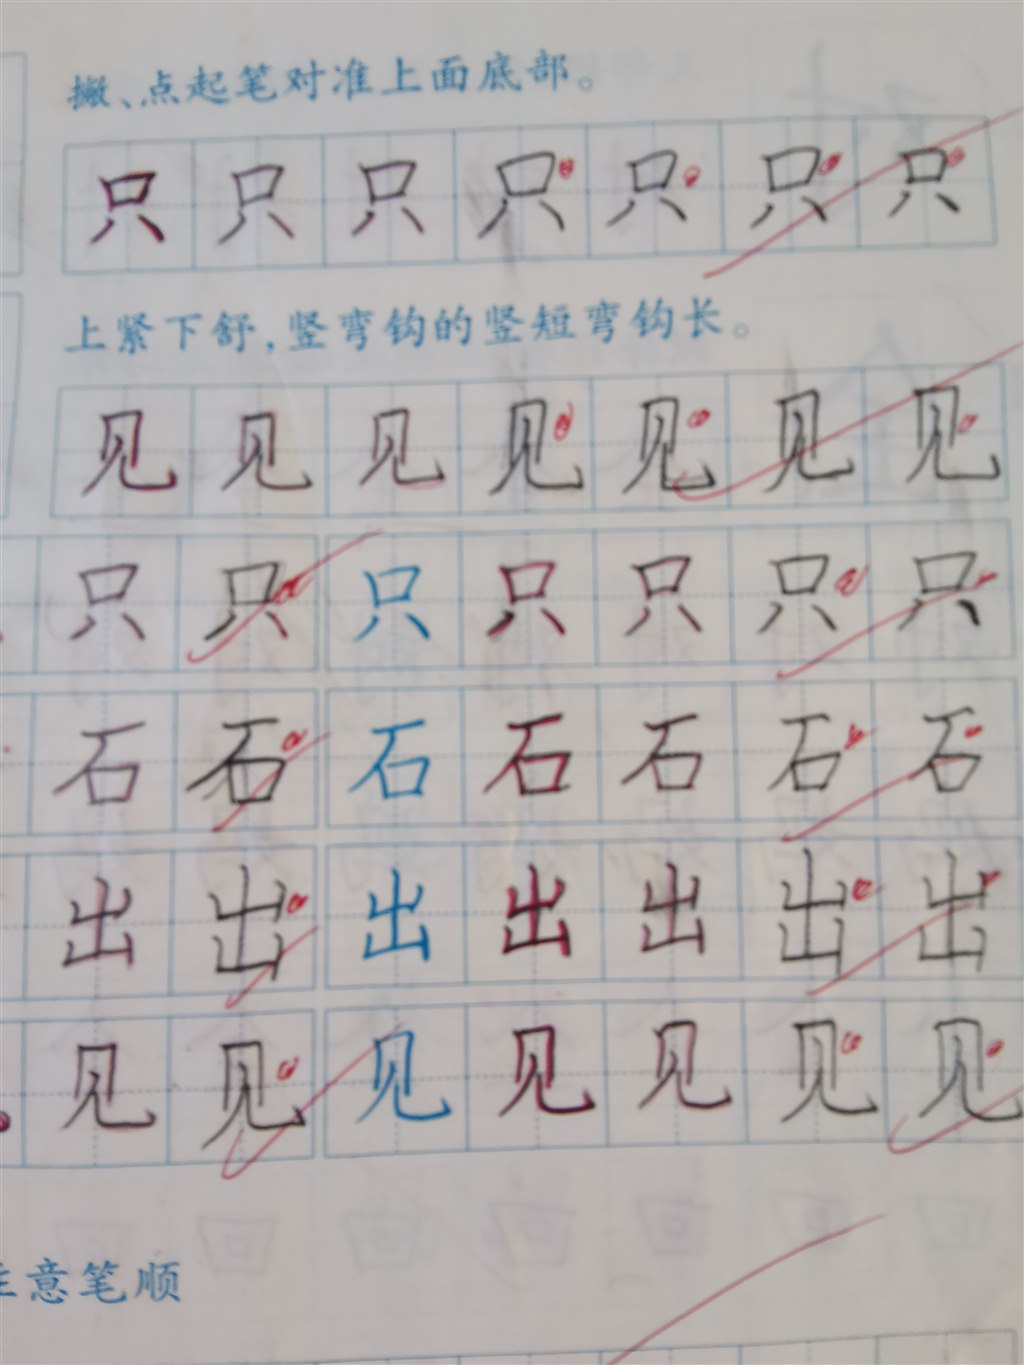 撇、点起笔对准上面底部。
只只只只只只只
上紧下舒，竖弯钩的竖短弯钩长。
见见见见见见见
只只只只只只只
石石石石石石石
出出出出出出出
见见见见见见见
注意笔顺